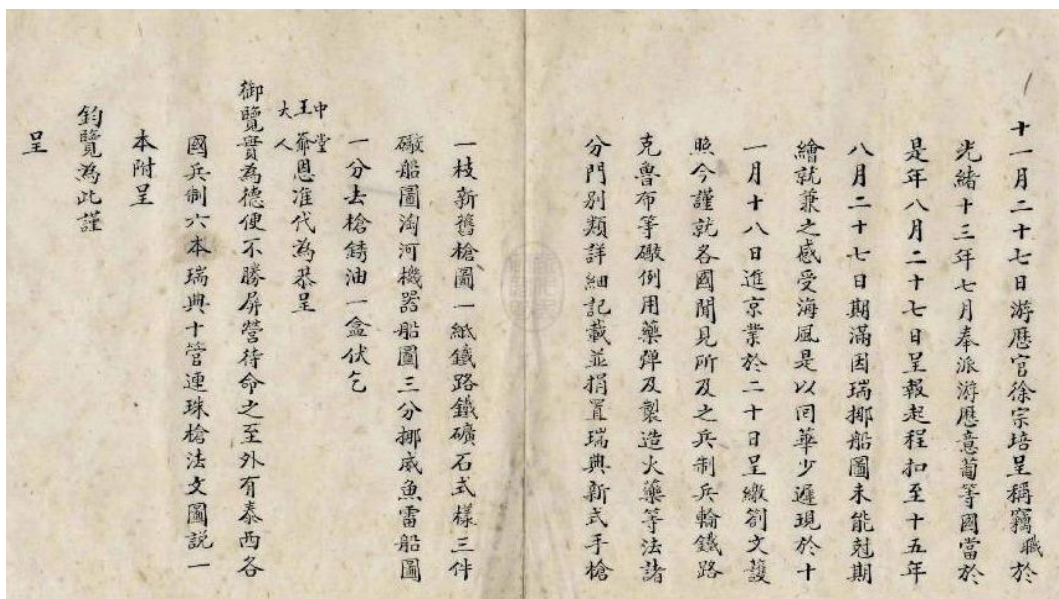 十一月二十七日游歷官徐宗培呈稱竊職於
光緒十三年七月奉派游歷意葡等國當於
是年八月二十七日呈報起程扣至十五年
八月二十七日期滿因瑞挪船圖未能尅期
繪就兼之感受海風是以囘華少遲現於十
一月十八日進京業於二十日呈繳劄文護
照今謹就各國聞見所及之兵制兵輪鐵路
克魯布等礮例用藥彈及製造火藥等法諸
分門別類詳細記載並捐置瑞典新式手槍
一枝新舊槍圖一紙鐵路鐵礦石式樣三件
礮船圖淘河機器船圖三分挪威魚雷船圖
一分去槍銹油一盒伏乞
中堂王爺大人恩准代為恭呈
御覽實為德便不勝屏營待命之至外有泰西各
國兵制六本瑞典十管連珠槍法文圖説一
本附呈
鈞覽為此謹
呈